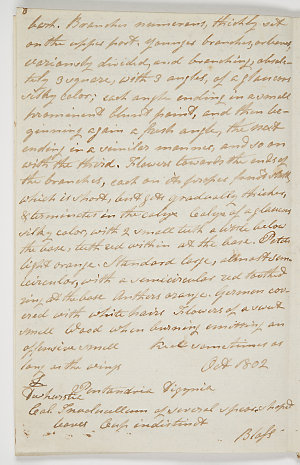 8
bark. Branches numerous, thickly set
on the upper part. younger branches,
variously divided, and branching, abso-
lutely 3 square, with 3 angles, of a glaucous
silky color; each angle ending in a small
prominent blunt point, and then be-
ginning again a fresh angle, the next
ending in a similar manner, and so on
with the third. Flowers towards the ends of
the branches, each on its proper stalk
which is short, and gets gradually thicker,
& terminates in the calyx Calyx of a glaucous
silky color, with 2 small teeth a little below
the base, teeth red within at the base. Petals
light orange. Standard large, almost semi
circular, with a semicircular red
ring at the base Anthers orange. Germen cov-
ered with white hairs Flowers of a sweet
smell Wood when burning emitting an
offensive smell Keel sometimes as
long as the wings Oct 1802
Pentandria Digynia
Cal. of several spoon shaped
leaves Cup indistinct
Bloss